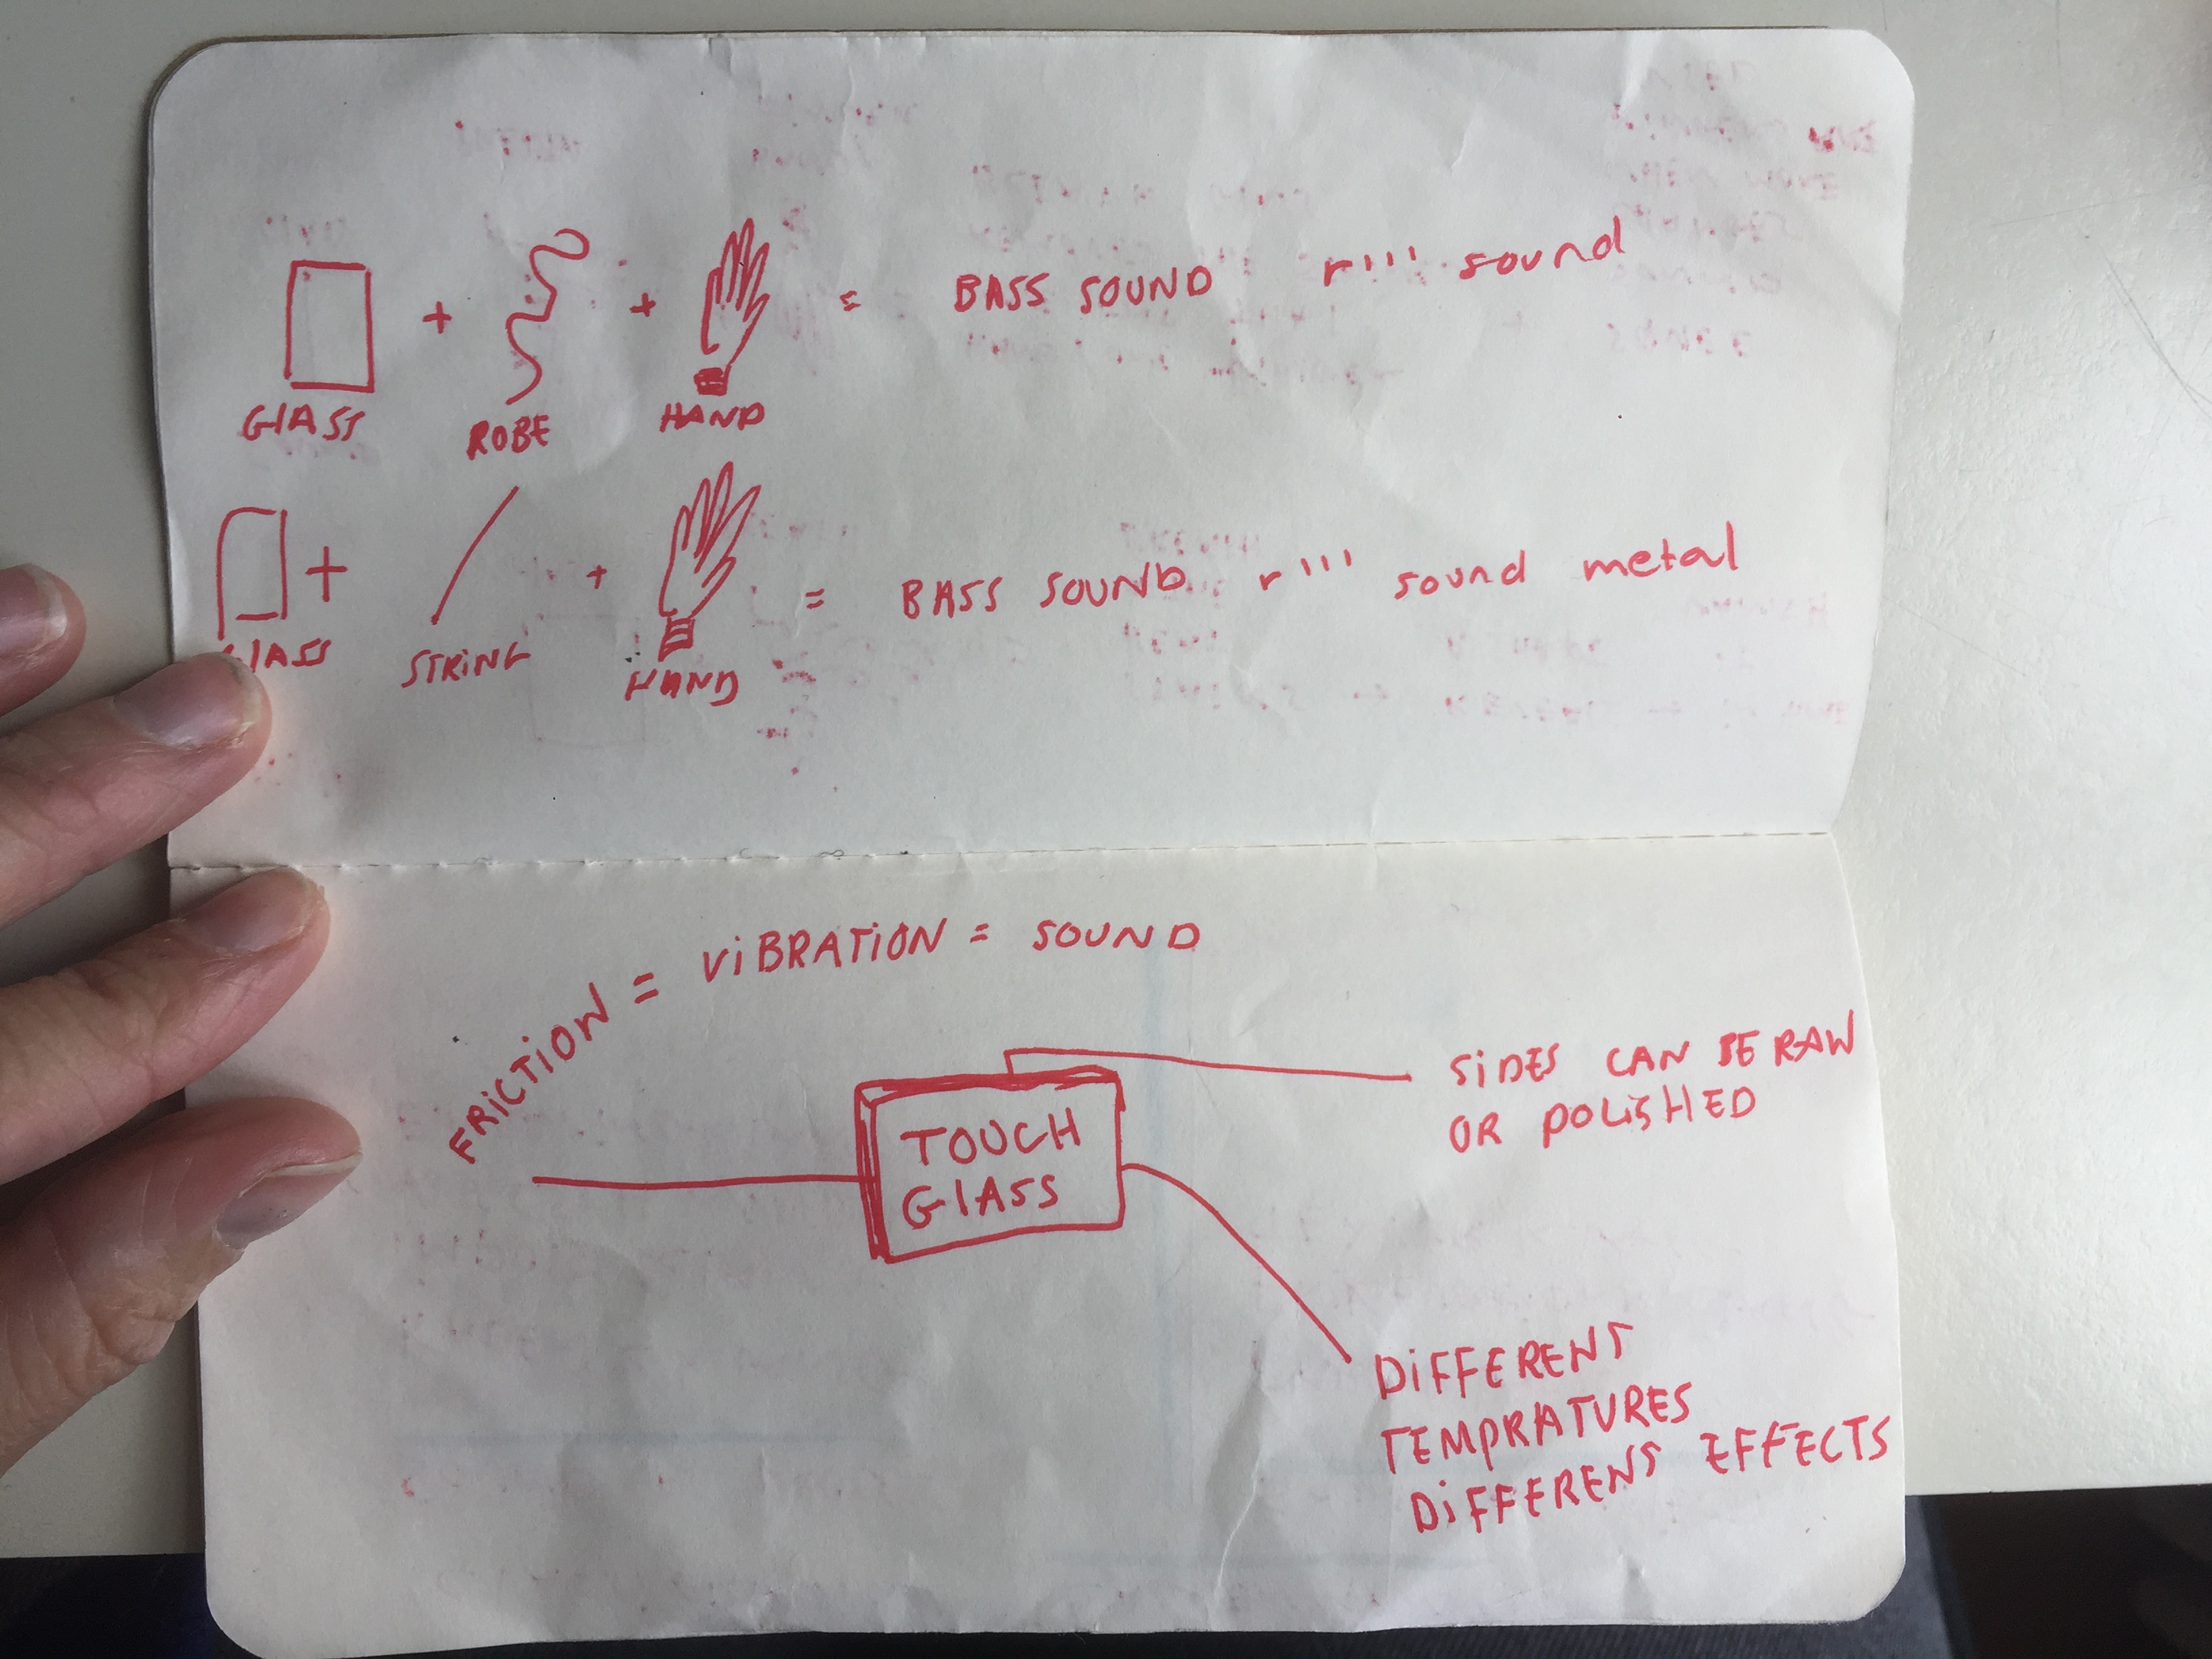 + + = BASS SOUND r''' sound
GLASS ROBE HAND
+ + = BASS SOUND r''' sound metal
GLASS STRING HAND
FRICTION = VIBRATION = SOUND
SIDES CAN BE RAW
OR POLISHED
TOUCH
GLASS
DIFFERENT
TEMPRATURES
DIFFERENT EFFECTS